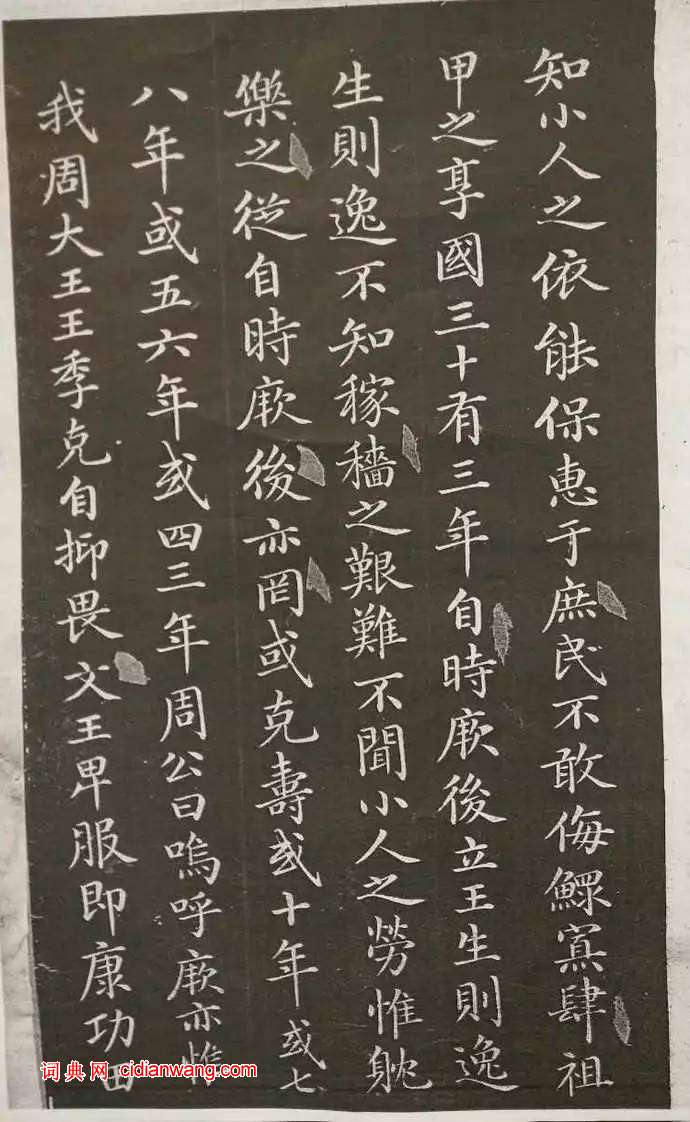 知小人之依能保惠于庶民不敢侮鰥寡肆祖
甲之享國三十有三年自時厥後立王生則逸
生則逸不知稼穡之艱難不聞小人之勞惟耽
樂之從自時厥後亦罔或克壽或十年或七
八年或五六年或四三年周公曰嗚呼厥亦惟
我周大王王季克自抑畏文王卑服即康功田
词典网 cidianwang.com